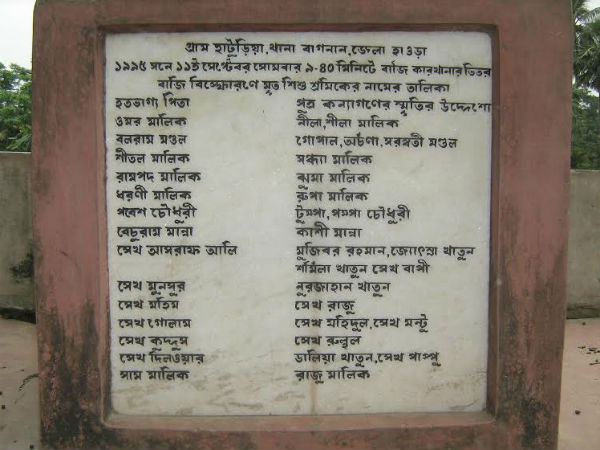 গ্রাম হাটুড়িয়া,থানা বাগনান,জেলা হাওড়া
১৯৯৫ সনে ১১ই সেপ্টেম্বর সোমবার ৯-৪০ মিনিটে বাজি কারখানার ভিতর
বাজি বিস্ফোরণে মৃত শিশু শ্রমিকের নামের তালিকা
হতভাগ্য পিতা পুত্র কন্যাগণের স্মৃতির উদ্দেশ্যে
ওমর মালিক নীলা,শীলা মালিক
বলরাম মণ্ডল গোপাল,অর্চণা,সরস্বতী মণ্ডল
শীতল মালিক সন্ধ্যা মালিক
রামপদ মালিক ঝুমা মালিক
ধরণী মালিক রুপা মালিক
পরেশ চৌধুরী টুম্পা,পম্পা চৌধুরী
বেচুরাম মান্না কাশী মান্না
সেখ আসরাফ আলি মুজিবর রহমান,জ্যোৎস্না খাতুন
শর্মিলা খাতুন সেখ বাপী
সেখ মুনসুর নুরজাহান খাতুন
সেখ মহিম সেখ রাজু
সেখ গোলাম সেখ মহিদুল,সেখ মন্টু
সেখ কুদ্দুস সেখ রুলুল
সেখ দিলওয়ার ডালিয়া খাতুন,সেখ পাম্পু
সাম মালিক রাজু মালিক